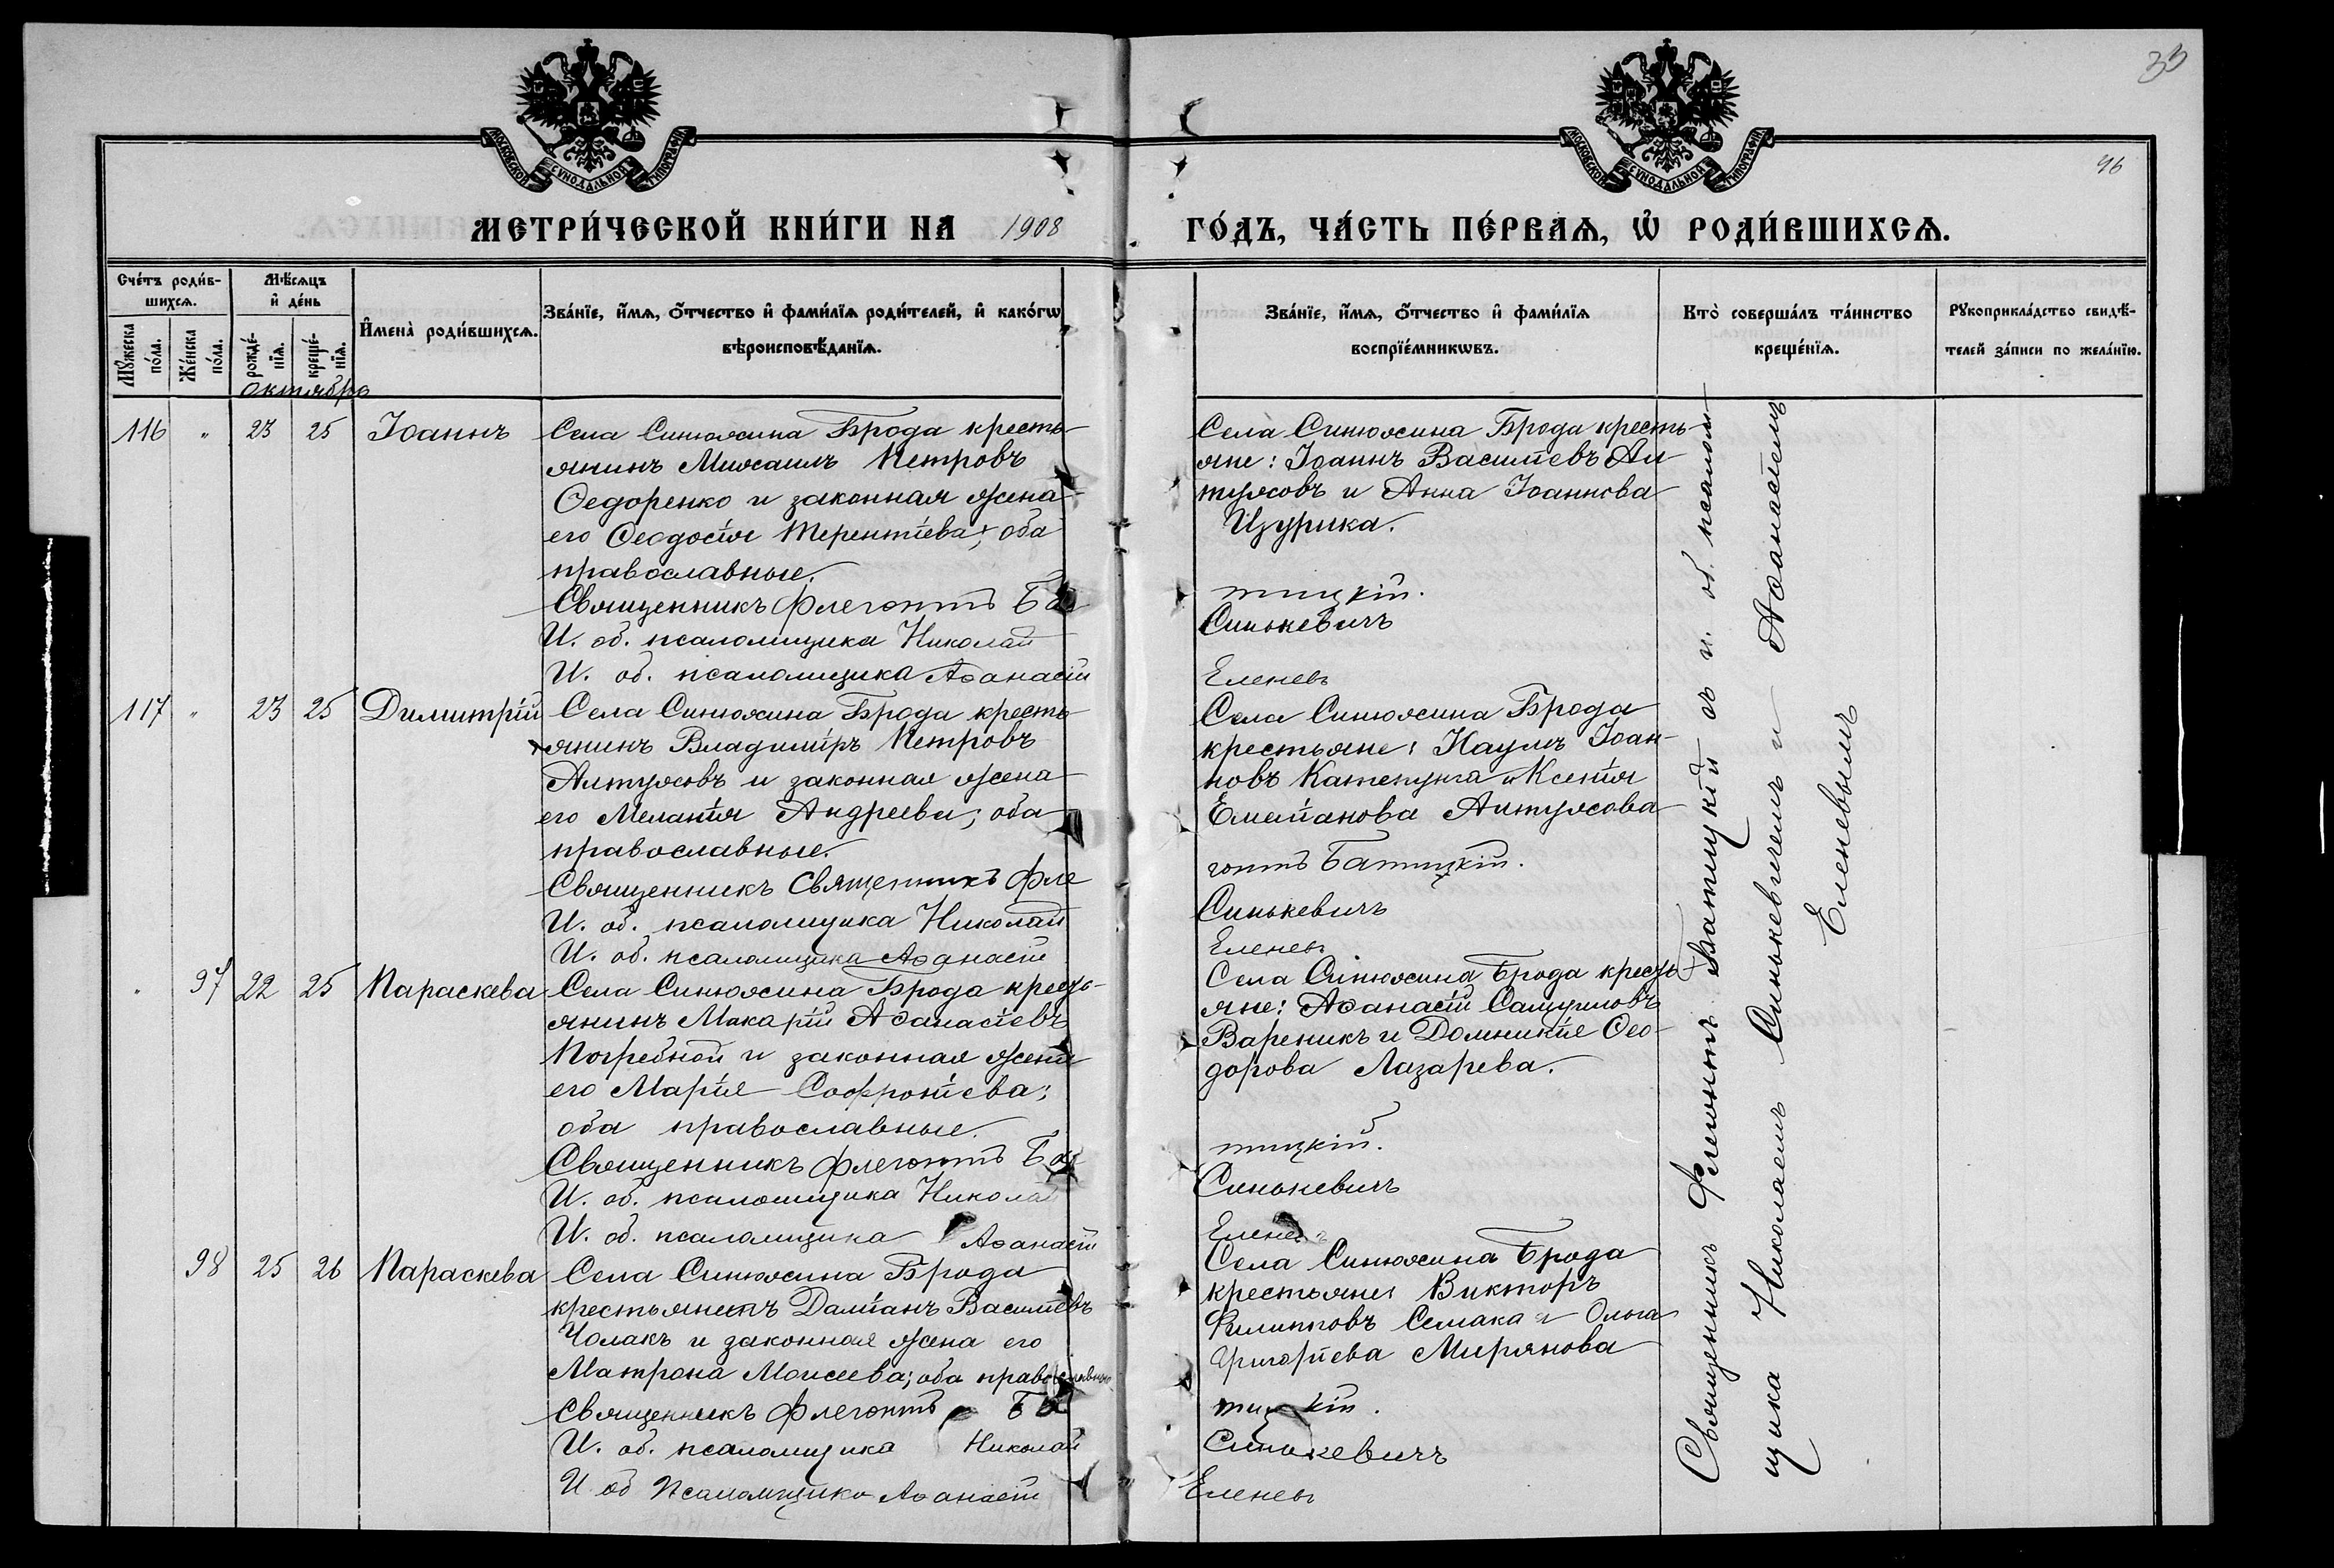 35
96
МОСКОВСКОЙ СѴНОДАЛЬНОЙ ТИПОГРАФІИ
МОСКОВСКОЙ СѴНОДАЛЬНОЙ ТИПОГРАФІИ
МЕТРИ́ЧЕСКОЙ КНИ́ГИ НА 1908
ГО́ДЪ, ЧА́СТЬ ПЕ́РВАѦ, Ѡ҆ РОДИ́ВШИХСѦ.
Сче́тъ роди́в-
шихсѧ.
Мꙋ́жеска
по́ла.
Же́нска
по́ла.
Мѣ́сѧцъ
и҆ де́нь
рожде́-
нїѧ.
креще́-
нїѧ.
И҆мена̀ роди́вшихсѧ.
Зва́нїе, и҆́мѧ, ѻ҆́тчество и҆ фами́лїѧ роди́телей, и҆ како́гѡ
вѣроисповѣ́данїѧ.
Зва́нїе, и҆́мѧ, ѻ҆́тчество и҆ фами́лїѧ
воспрїе́мникѡвъ.
Кто̀ соверша́лъ та́инство
креще́нїѧ.
Рꙋкоприкла́дство свидѣ́-
телей за́писи по жела́нїю.
Октябрь
116 " 23 25 Іоаннъ
Села Синюхина Брода кресть-
янинъ Михаилъ Петровъ
Ѳедоренко и законная жена
его Ѳеодосія Терентіева; оба
православные.
Священникъ Флегонтъ Ба
И. об. псаломщика Николай
И. об. псаломщика Аѳанасій
Села Синюхина Брода кресть-
яне: Іоаннъ Васильевъ Ал-
туховъ и Анна Іоаннова
Цурика.
тицкій.
Синькевичъ
Еленевъ
117 " 23 25 Димитрій
Села Синюхина Брода кресть-
янинъ Владиміръ Петровъ
Алтуховъ и законная жена
его Меланія Андреева; оба
православные.
Священникъ Священникъ Фле
И. об. псаломщика Николай
И. об. псаломщика Аѳанасій
Села Синюхина Брода
крестьяне: Наумъ Іоан-
новъ и Ксенія
Емельянова Алтухова
гонтъ Батицкій.
Синькевичъ
Еленевъ
" 97 22 25 Параскева
Села Синюхина Брода кресть-
янинъ Макарій Аѳанасіевъ
Погребной и законная жена
его Марія Софроніева;
оба православные.
Священникъ Флегонтъ Ба
И. об. псаломщика Николай
И. об. псаломщика Аѳанасій
Села Синюхина Брода кресть-
яне: Аѳанасій Самуиловъ
Вареникъ и Домникія Ѳео-
дорова Лазарева.
тицкій.
Синькевичъ
Еленевъ
98 25 26 Параскева
Села Синюхина Брода
крестьянинъ Даміанъ Васильевъ
Чолакъ и законная жена его
Матрона Моисеева; оба православные
Священникъ Флегонтъ Ба
И. об. псаломщика Николай
И об псаломщика Аѳанасій
Села Синюхина Брода
крестьяне: Викторъ
Филипповъ Семака и Ольга
Григорьева Мирянова
тицкій.
Синькевичъ
Еленевъ
Священникъ Флегонтъ Батицкій съ и. об. псалом-
щика Николаемъ Синькевичемъ и Аѳанасіемъ
Еленевымъ